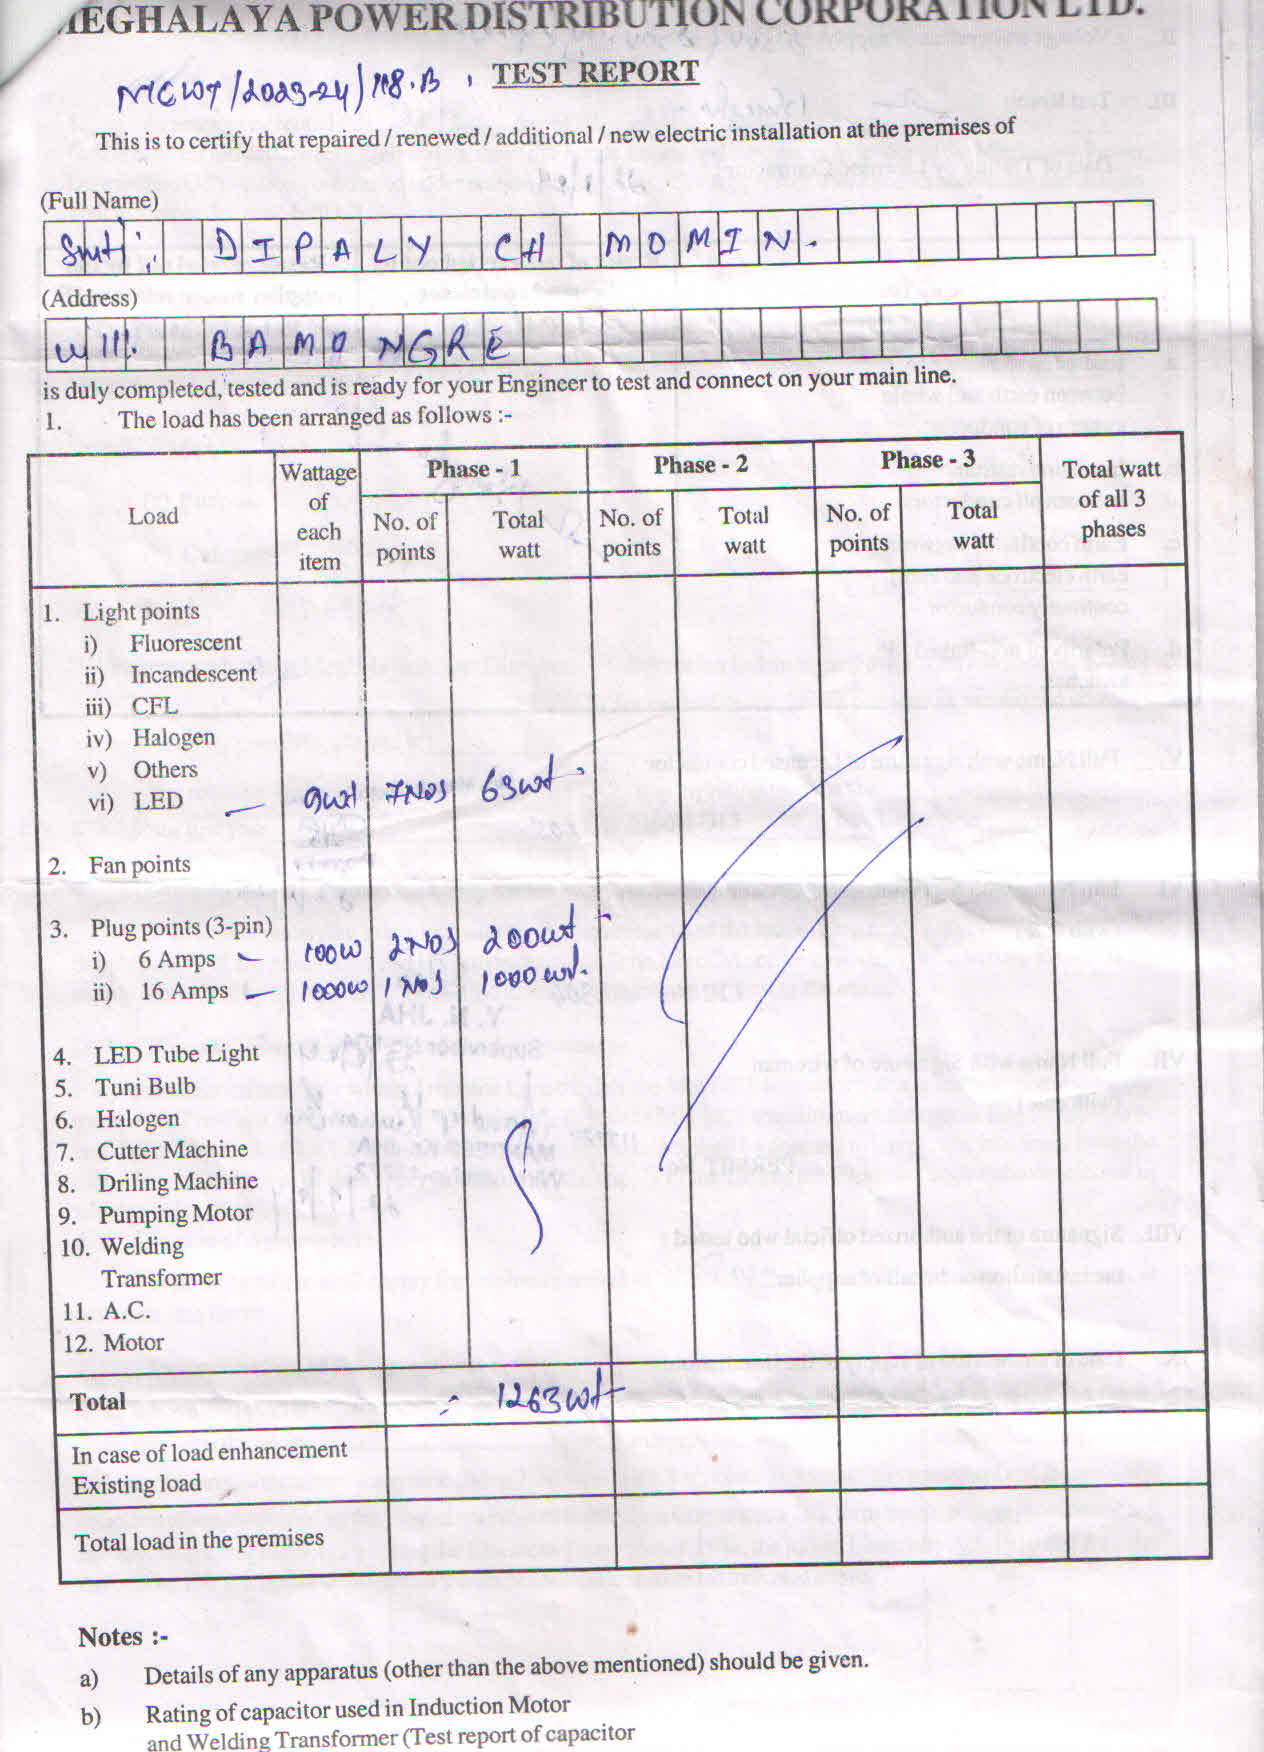 MEGHALAYA POWER DISTRIBUTION CORPORATION LTD.
MCWT/2023-24/118.B, TEST REPORT
This is to certify that repaired / renewed / additional / new electric installation at the premises of
(Full Name)
Smti: DIPALY CH MOMIN.
(Address)
Will: BAMONGRE
is duly completed, tested and is ready for your Engineer to test and connect on your main line.
1. The load has been arranged as follows :-
Load Wattage of each item Phase - 1 Phase - 2 Phase - 3 Total watt of all 3 phases
No. of points Total watt No. of points Total watt No. of points Total watt
1. Light points
i) Fluorescent
ii) Incandescent
iii) CFL
iv) Halogen
v) Others
vi) LED — 9wt 7NOS 63wt
2. Fan points
3. Plug points (3-pin)
i) 6 Amps — 100W 2NOS 200wt
ii) 16 Amps — 1000W 1NOS 1000wt.
4. LED Tube Light
5. Tuni Bulb
6. Halogen
7. Cutter Machine
8. Driling Machine
9. Pumping Motor
10. Welding
Transformer
11. A.C.
12. Motor
Total :- 1263wt
In case of load enhancement
Existing load
Total load in the premises
Notes :-
a) Details of any apparatus (other than the above mentioned) should be given.
b) Rating of capacitor used in Induction Motor
and Welding Transformer (Test report of capacitor